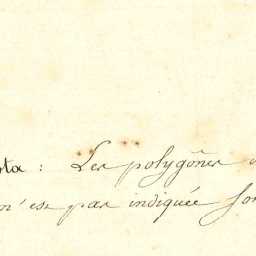 ta : Les polygones
n'est pas indiquée